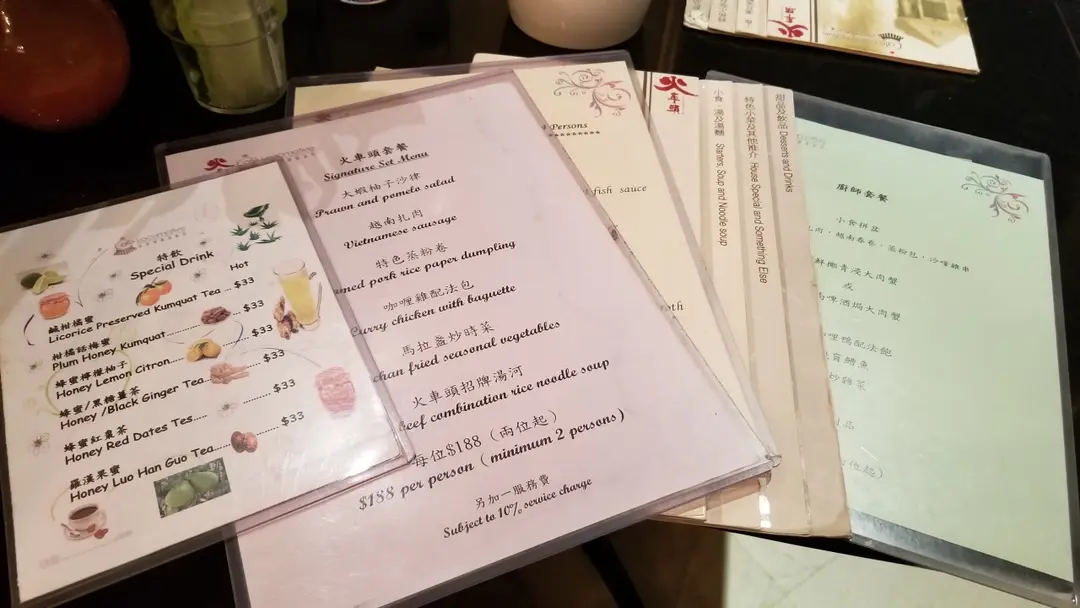 特飲
Special Drink
Hot
鹹柑橘蜜
Licorice Preserved Kumquat Tea ... $33
柑橘話梅蜜
Plum Honey Kumquat.................. $33
蜂蜜檸檬柚子
Honey Lemon Citron.................. $33
蜂蜜/黑糖薑茶
Honey /Black Ginger Tea............ $33
蜂蜜紅棗茶
Honey Red Dates Tes..... $33
羅漢果蜜
Honey Luo Han Guo Tea...... $33
火車頭套餐
Signature Set Menu
大蝦柚子沙律
Prawn and pomelo salad
越南扎肉
Vietnamese sausage
特色蒸粉卷
pork rice paper dumpling
咖喱雞配法包
Curry chicken with baguette
馬拉盞炒時菜
fried seasonal vegetables
火車頭招牌湯河
Beef combination rice noodle soup
每位$188 (兩位起)
$188 per person (minimum 2 persons)
另加一服務費
Subject to 10% service charge
4 Persons
fish sauce
火車頭
小食、湯及湯麵 Starters, Soup and Noodle soup
特色小菜及其他推介 House Special and Something Else
甜品及飲品 Desserts and Drinks
廚師套餐
小食拼盆
扎肉，越南春卷，蒸粉包，沙嗲雞串
鮮椰青浸大肉蟹
或
啤酒焗大肉蟹
喱鴨配法飽
炒雜菜
品
位起)
火車頭